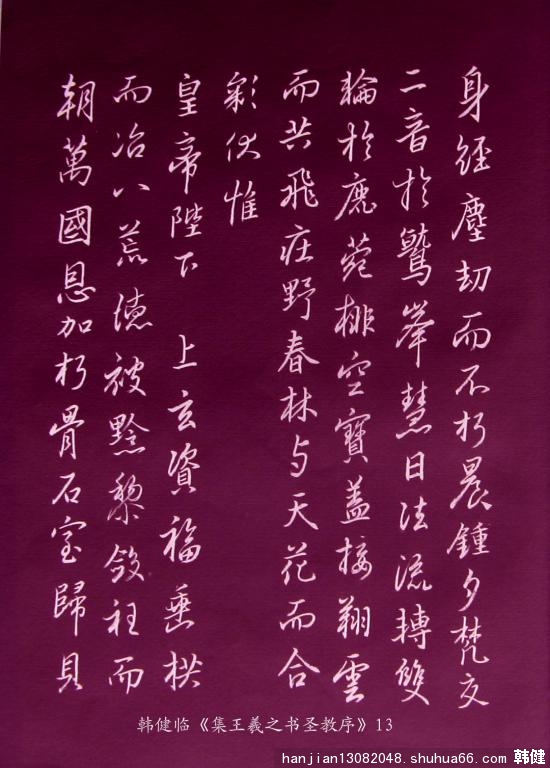 身經塵劫而不朽晨鍾夕梵交
二音於鷲峯慧日法流轉雙
輪於鹿菀排空寶蓋接翔雲
而共飛莊野春林与天花而合
彩伏惟
皇帝陛下 上玄資福垂拱
而治八荒德被黔黎斂衽而
朝萬國恩加朽骨石室歸貝
韩健临《集王羲之书圣教序》13
hanjian13082048.shuhua66.com 韩健